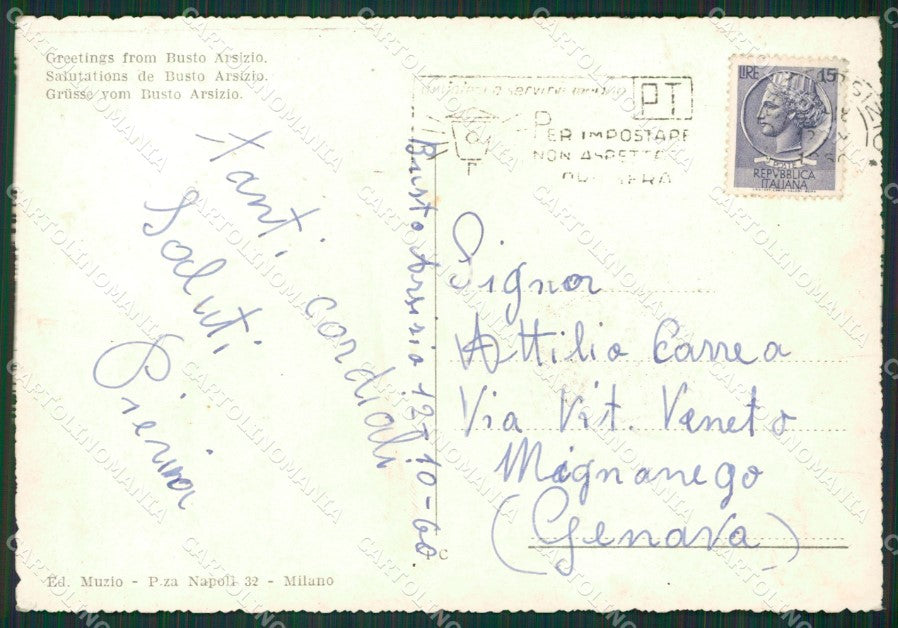 Greetings from Busto Arsizio.
Salutations de Busto Arsizio.
Grüsse vom Busto Arsizio.
Tanti cordiali
Saluti
Pierina
Busto Arsizio 12-10-60
PT
PER IMPOSTARE
NON ASPETTATE
SERA
LIRE 15
REPVBBLICA
ITALIANA
Signor
Attilio Carrea
Via Vit. Veneto
Mignanego
(Genova)
Ed. Muzio - P.za Napoli 32 - Milano
CARTOLINOMANIA